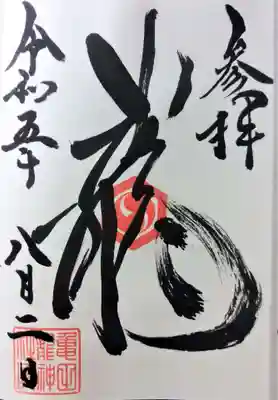 参拝
龍
令和五年
八月二日
龜山
龍神